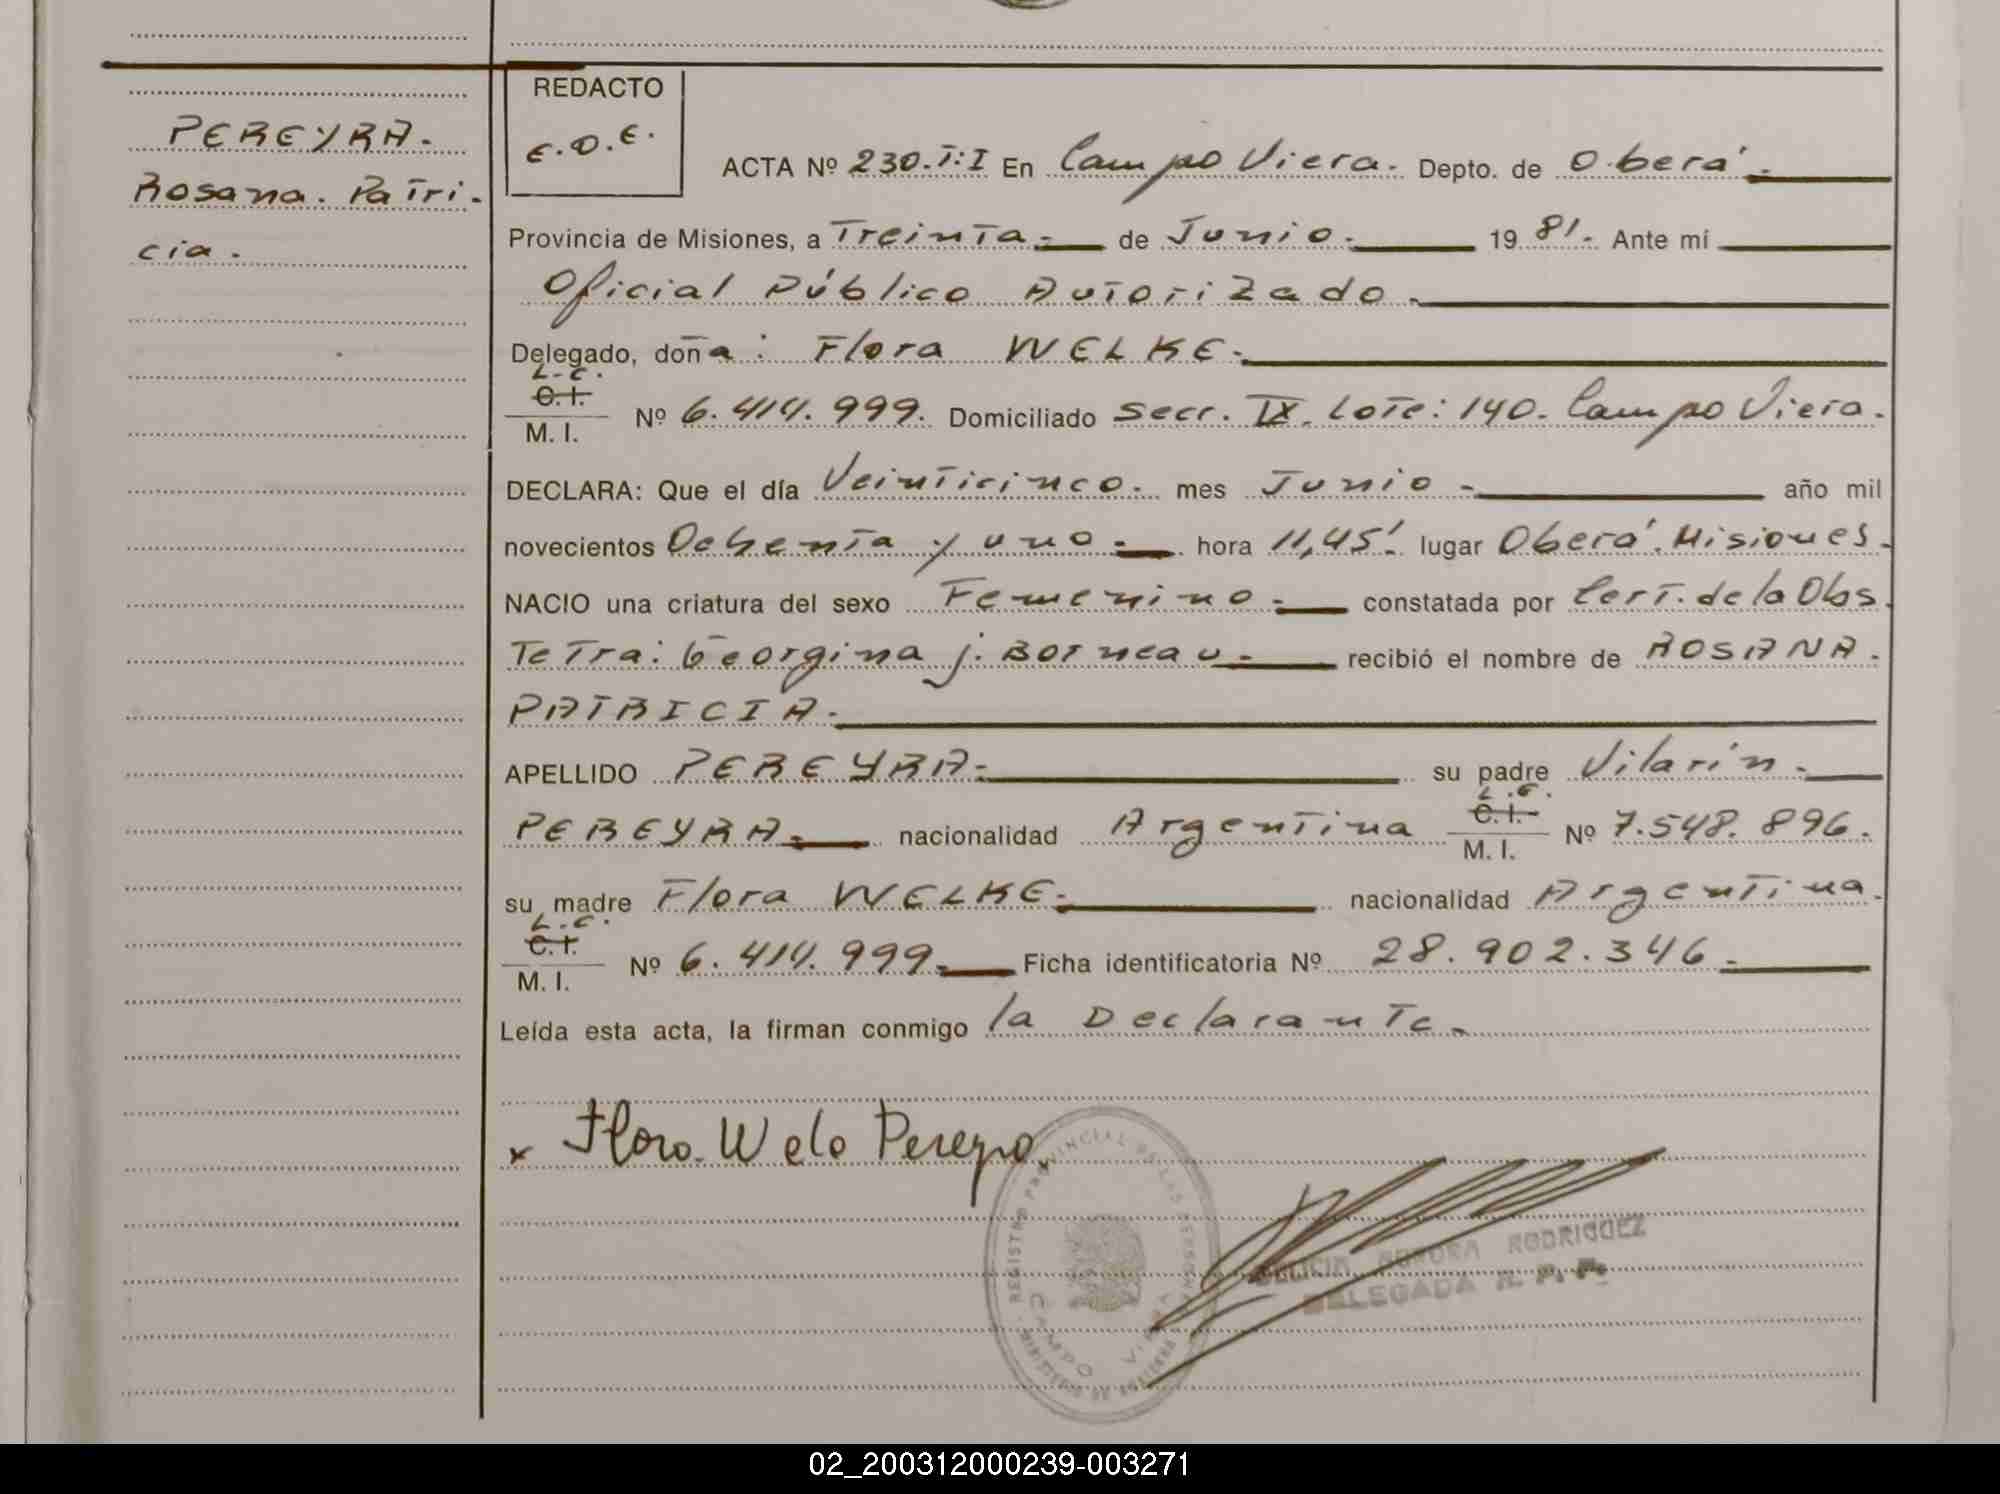 PEREYRA.
Rosana. Patri-
cia.
REDACTO
E.O.E.
ACTA Nº 230.T:I En Campo Viera. Depto. de Oberá.
Provincia de Misiones, a Treinta. de Junio. 1981. Ante mí
Oficial Público Autorizado.
Delegado, doña: Flora WELKE.
L.C.
C.I.
M.I. Nº 6.414.999. Domiciliado Secc. IX. Lote: 140. Campo Viera.
DECLARA: Que el día Veinticinco. mes Junio. año mil
novecientos Ochenta y uno. hora 11,45'. lugar Oberá. Misiones.
NACIO una criatura del sexo Femenino. constatada por Cert. de la Obs
Tetra: Georgina J. Borneau. recibió el nombre de ROSANA.
PATRICIA.
APELLIDO PEREYRA. su padre Vilarín.
PEREYRA. nacionalidad Argentina L.E. C.I. M.I. Nº 7.548.896.
su madre Flora WELKE. nacionalidad Argentina.
L.C.
C.I.
M.I. Nº 6.414.999. Ficha identificatoria Nº 28.902.346.
Leída esta acta, la firman conmigo la Declarante.
x Flora Pereyra
REGISTRO PROVINCIAL DE LAS PERSONAS
CAMPO VIERA
MINISTERIO DE GOBIERNO
AURORA RODRIGUEZ
DELEGADA R. P. P.
02_200312000239-003271